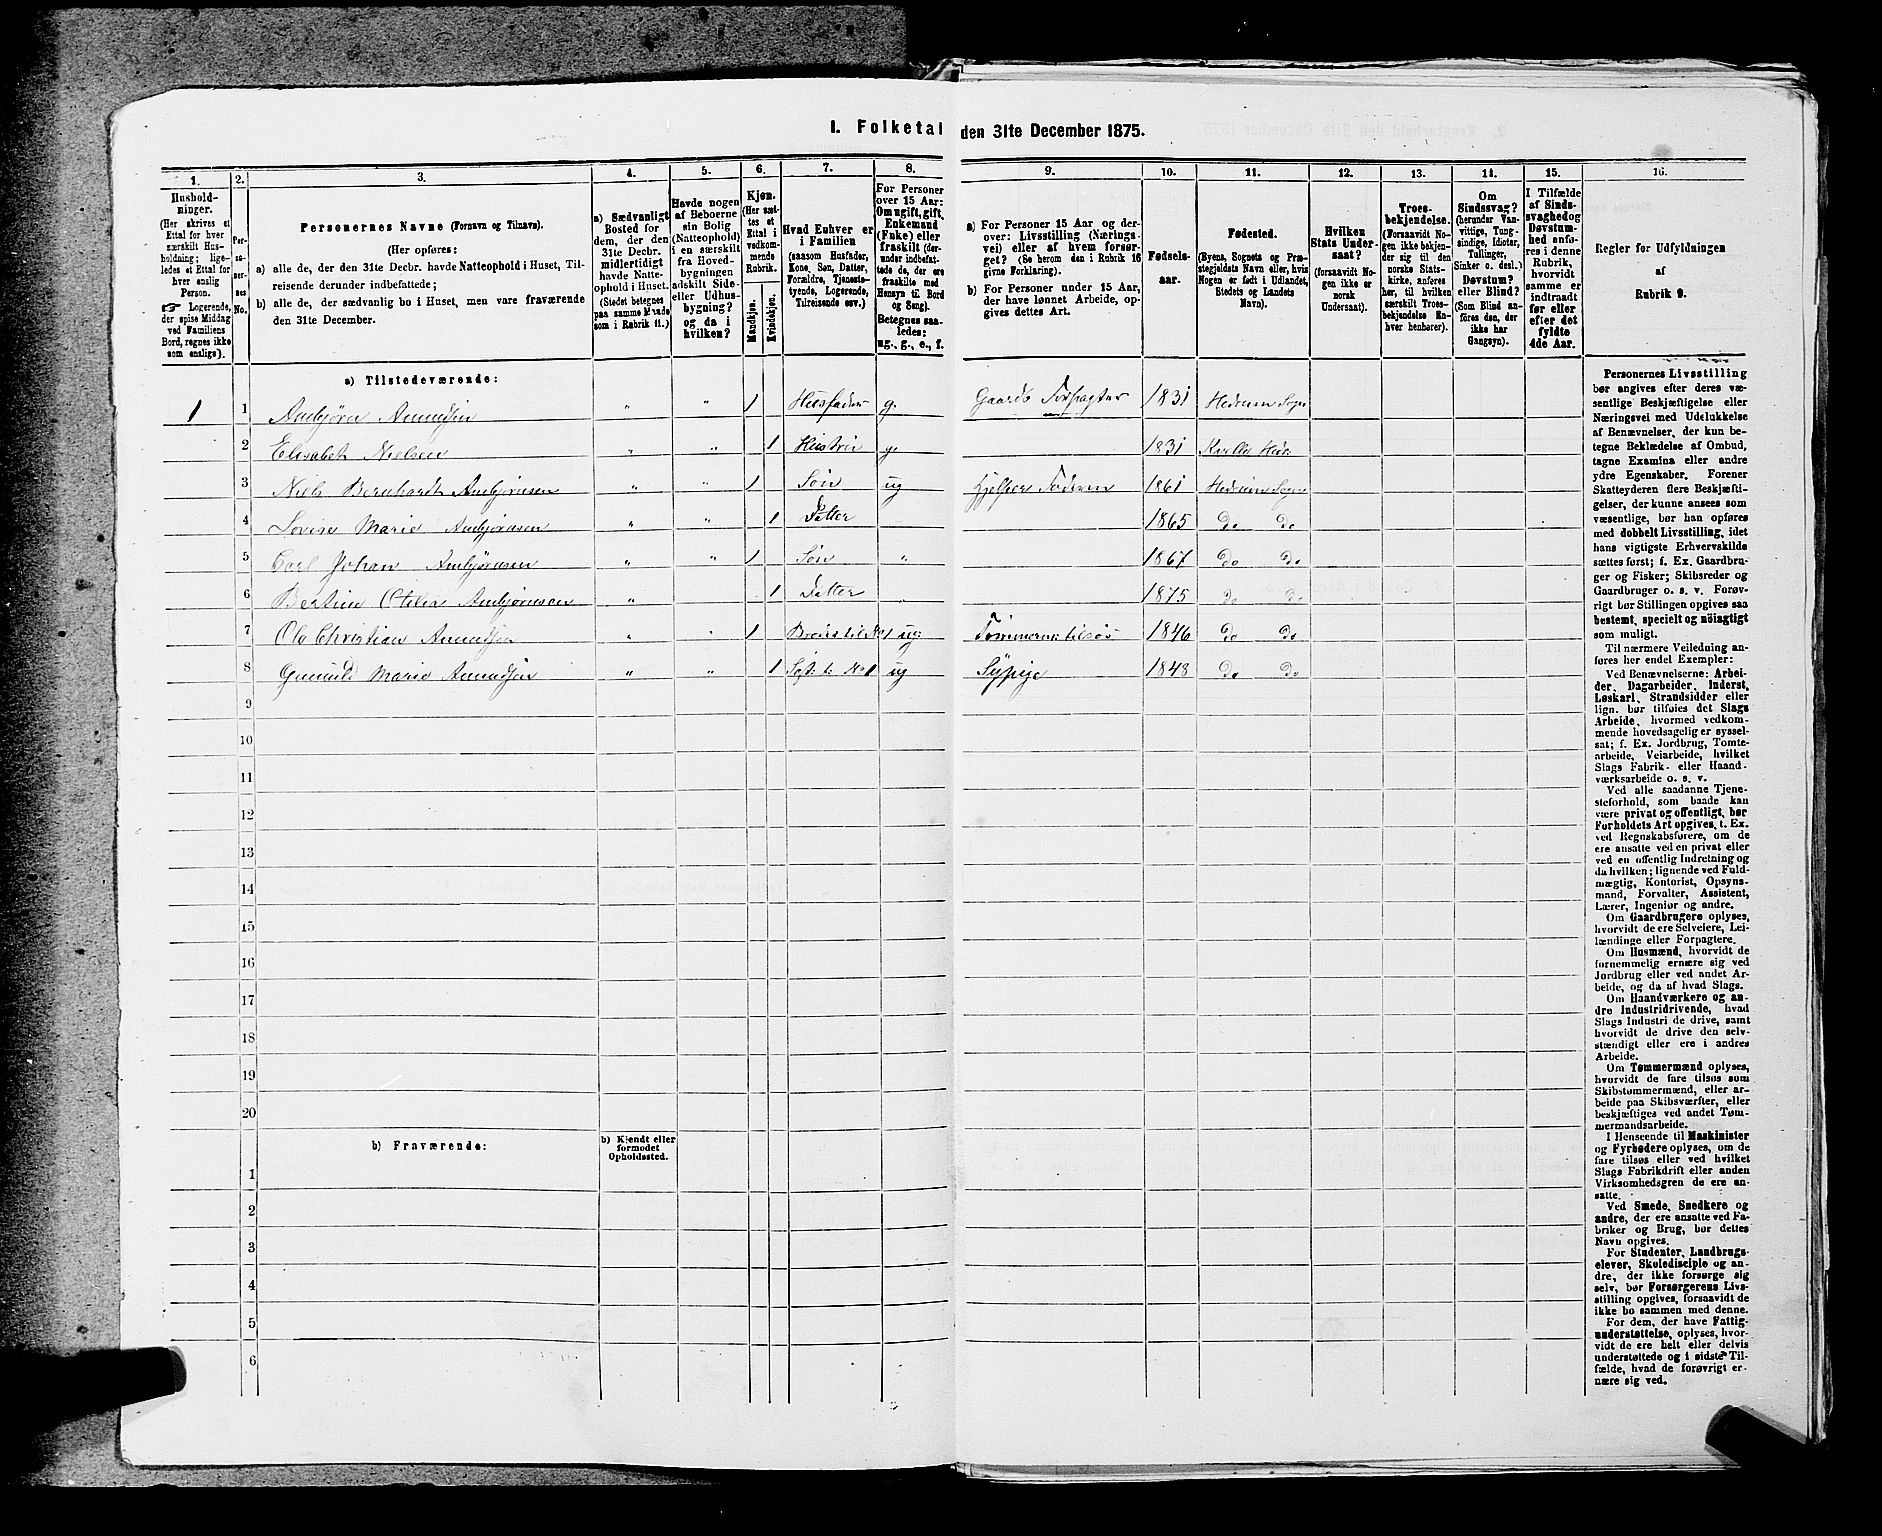 I. Folketal den 31te December 1875.
1.
2.
3.
4.
5.
6.
7.
8.
9.
10.
11.
12.
13.
14.
15.
16.
Husholdninger.
(Her skrives et
Ettal for hver
særskilt Husholdning; ligeledes
et Ettal for
hver enslig
Person.
☞ Logerende,
der spise Middag
ved Familiens
Bord, regnes ikke
som enslige).
Personernes No.
Personernes Navne (Fornavn og Tilnavn).
(Her opføres:
a) alle de, der den 31te Decbr. havde Natteophold i Huset, Tilreisende derunder indbefattede;
b) alle de, der sædvanlig bo i Huset, men vare fraværende
den 31te December.
a) Sædvanligt
Bosted for
dem, der den
31te Decbr.
midlertidigt
havde Natteophold i Huset.
(Stedet betegnes
paa samme Maade
som i Rubrik 11.)
Havde nogen
af Beboerne
sin Bolig
(Natteophold)
i en særskilt
fra Hovedbygningen
adskilt Side- eller Udhusbygning?
og da i
hvilken?
Kjøn.
(Her sættes et
Ettal i
vedkommende
Rubrik.
Mandkjøn.
Kvindekjøn.
Hvad Enhver er
i Familien
(saasom Husfader,
Kone, Søn, Datter,
Forældre, Tjenestetyende, Logerende,
Tilreisende osv.)
For Personer
over 15 Aar:
Om ugift, gift,
Enkemand
(Enke) eller
fraskilt (derunder indbefattede de, der ere
fraskilte med
Hensyn til Bord
og Seng).
Betegnes saaledes:
ug., g., e., f.
a) For Personer 15 Aar og derover: Livsstilling (Næringsvei) eller af hvem forsørget? (Se herom den i Rubrik 16
givne Forklaring).
b) For Personer under 15 Aar,
der have lønnet Arbeide, opgives dettes Art.
Fødselsaar.
Fødested.
(Byens, Sognets og Præstegjeldets Navn eller, hvis
Nogen er født i Udlandet,
Stedets og Landets
Navn).
Hvilken
Stats Undersaat?
(forsaavidt Nogen ikke er
norsk
Undersaat).
Troesbekjendelse.
(Forsaavidt Nogen ikke bekjender sig til den
norske Statskirke, anføres
her, til hvilken
særskilt Troesbekjendelse Enhver henhører).
Om
Sindssvag?
(herunder Vanvittige, Tungsindige, Idioter,
Tullinger,
Sinker o. desl.)
Døvstum?
eller Blind?
(Som Blind anføres den, der
ikke har
Gangsyn).
I Tilfælde
af Sindssvaghed og
Døvstumhed anføres i denne
Rubrik,
hvorvidt
samme er
indtraadt
før eller
efter det
fyldte
4de Aar.
Regler for Udfyldningen
af
Rubrik 9.
a) Tilstedeværende:
1 1 Anbjørn Amundsen " " 1 Husfader g. Gaards Forpagter 1831 Hedrum Sogn
2 Elisabeth Nielsen " " 1 Hustru g. 1831 Kvelle Hedr:
3 Niels Bernhardt Anbjørnsen " " 1 Søn ug Hjelper Faderen 1861 Hedrum Sogn
4 Lovise Marie Anbjørnsen " " 1 Datter 1865 Do Do
5 Carl Johan Anbjørnsen " " 1 Søn " 1867 Do Do
6 Bertine Otilia Anbjørnsen " 1 Datter " 1875 Do Do
7 Ole Christian Amundsen " " 1 Broder til No 1 ug: Tømmerm: tilsøs 1846 Do Do
8 Gunnild Marie Amundsen " " 1 Søst: t: No 1 ug Sypige 1848 Do Do
9
10
11
12
13
14
15
16
17
18
19
20
b) Fraværende:
b) Kjendt eller
formodet
Opholdssted.
1
2
3
4
5
6
Personernes Livsstilling
bør angives efter deres væsentlige Beskjæftigelse eller
Næringsvei med Udelukkelse
af Benævnelser, der kun betegne Beklædelse af Ombud,
tagne Examina eller andre
ydre Egenskaber. Forener
Skatteyderen flere Beskjæftigelser, der kunne ansees som
væsentlige, bør han opføres
med dobbelt Livsstilling, idet
hans vigtigste Erhvervskilde
sættes først; f. Ex. Gaardbruger og Fisker; Skibsreder og
Gaardbruger o. s. v. Forøvrigt bør Stillingen opgives saa
bestemt, specielt og nøiagtigt
som muligt.
Til nærmere Veiledning anføres her endel Exempler:
Ved Benævnelserne: Arbeider, Dagarbeider, Inderst,
Løskarl, Strandsidder eller
lign. bør tilføies det Slags
Arbeide, hvormed vedkommende hovedsagelig er sysselsat; f. Ex. Jordbrug, Tomtearbeide, Veiarbeide, hvilket
Slags Fabrik- eller Haandværksarbeide o. s. v.
Ved alle saadanne Tjenesteforhold, som baade kan
være privat og offentligt, bør
Forholdets Art opgives, t. Ex.
ved Regnskabsførere, om de
ere ansatte ved en privat eller
ved en offentlig Indretning og
da hvilken; lignende ved Fuldmægtig, Kontorist, Opsynsmand, Forvalter, Assistent,
Lærer, Ingeniør og andre.
Om Gaardbrugere oplyses,
hvorvidt de ere Selveiere, Leilændinge eller Forpagtere.
Om Husmænd, hvorvidt de
fornemmelig ernære sig ved
Jordbrug eller ved andet Arbeide, og da af hvad Slags.
Om Haandværkere og andre Industridrivende, hvad
Slags Industri de drive, samt
hvorvidt de drive den selvstændigt eller ere i andres
Arbeide.
Om Tømmermænd oplyses,
hvorvidt de fare tilsøs som
Skibstømmermænd, eller arbeide paa Skibsværfter, eller
beskjæftiges ved andet Tømmermandsarbeide.
I Henseende til Maskinister
og Fyrbødere oplyses, om de
fare tilsøs eller ved hvilket
Slags Fabrikdrift eller anden
Virksomhedsgren de ere ansatte.
Ved Smede, Snedkere og
andre, der ere ansatte ved Fabriker og Brug, bør dettes
Navn opgives.
For Studenter, Landbrugselever, Skoledisciple og andre, der ikke forsørge sig
selv, bør Forsørgerens Livsstilling opgives, forsaavidt de
ikke bo sammen med denne.
For dem, der have Fattigunderstøttelse, oplyses, hvorvidt de ere helt eller delvis
understøttede og i sidste Tilfælde, hvad de forøvrigt ernære sig ved.